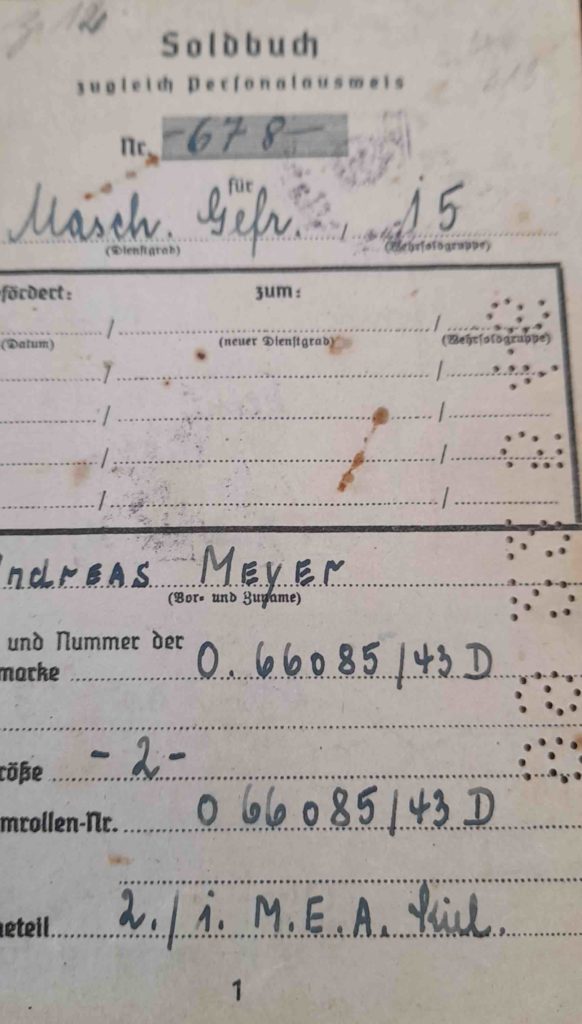 Soldbuch
zugleich Personalausweis
Nr. -678-
für
Masch. Gefr., 15
(Dienstgrad) (Wehrsoldgruppe)
fördert: zum:
(Datum) (neuer Dienstgrad) (Wehrsoldgruppe)
ndreas Meyer
(Vor- und Zuname)
und Nummer der
marke O. 66085/43 D
röße - 2 -
mrollen-Nr. O 66085/43 D
eteil 2./i. M.E.A. Kiel.
1